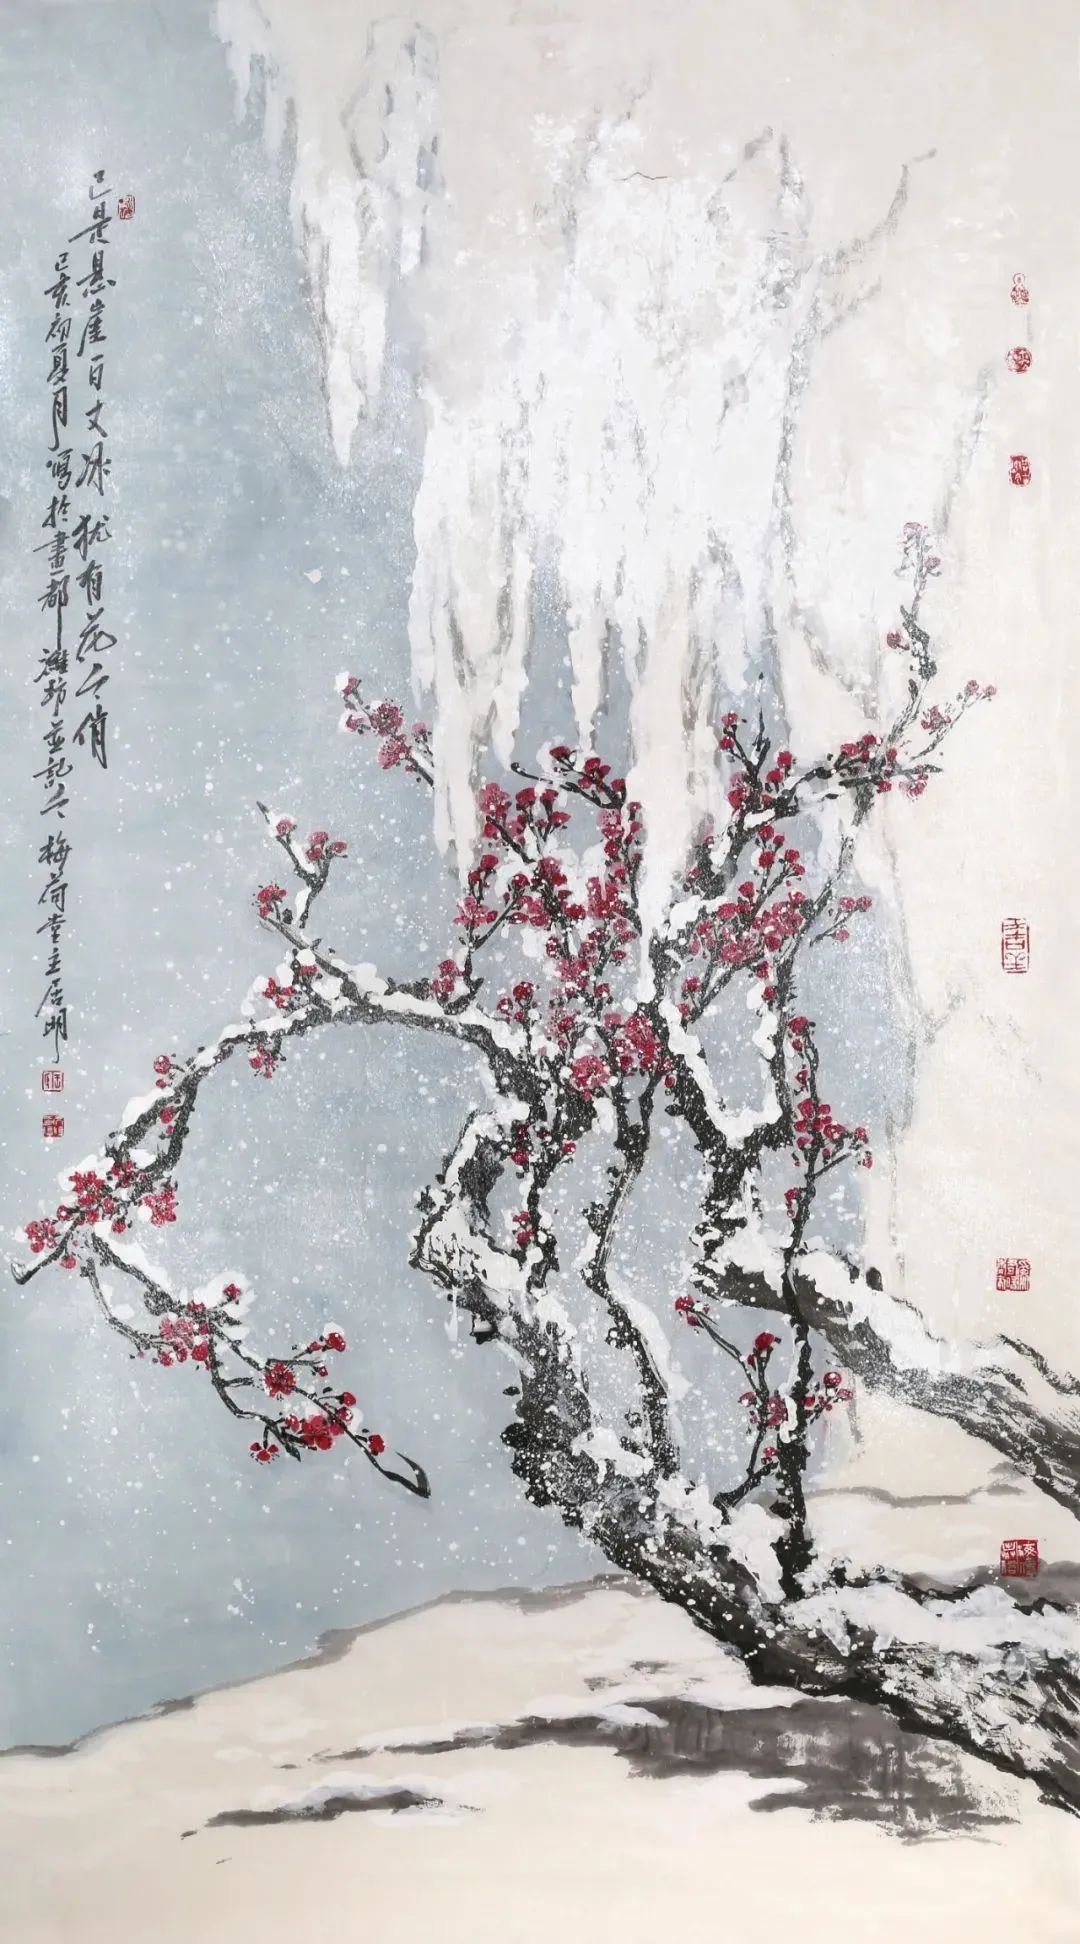 已是悬崖百丈冰犹有花之俏
己亥初夏月寫於畫都濰坊並記之梅荷堂主居明